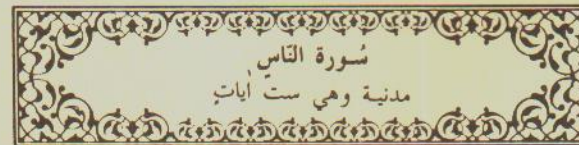 سُورة النّاسِ
مدنية وهي ست اٰياتٍ